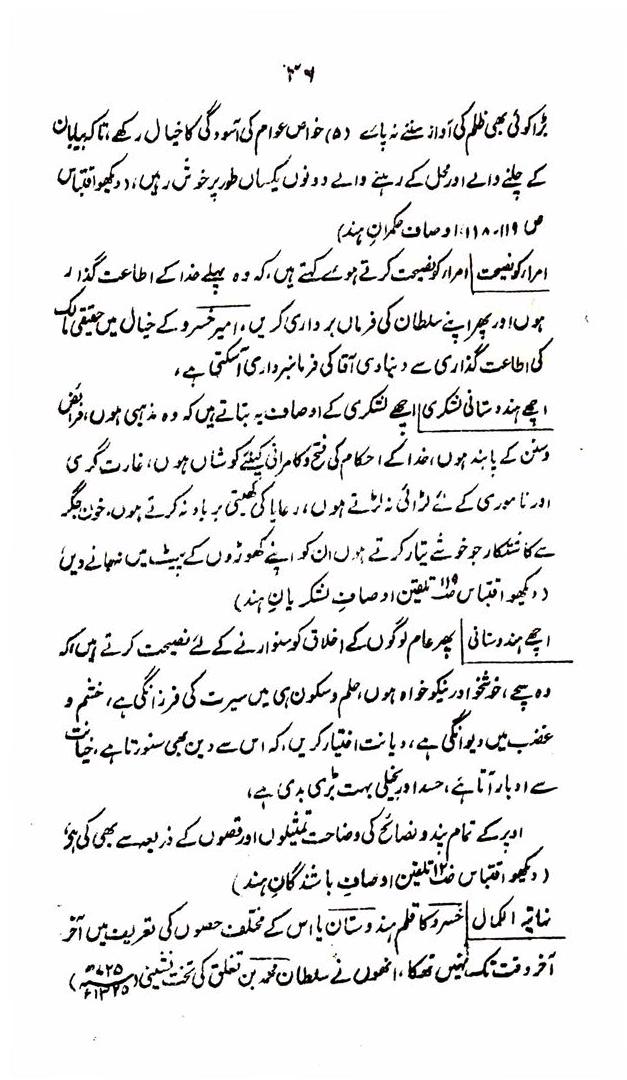 ۳۶
بڑا کوئی بھی ظلم کی آواز سننے نہ پائے (۵) خواص عوام کی آسودگی کا خیال رکھے، تاکہ بیابان
کے چلنے والے اور محل کے رہنے والے دونوں یکساں طور پر خوش رہیں، (دیکھو اقتباس
ص ۱۱۹-۱۱۸، اوصاف حکمرانِ ہند)
امراء کو نصیحت امراء کو نصیحت کرتے ہوئے کہتے ہیں، کہ وہ پہلے خدا کے اطاعت گذار
ہوں اور پھر اپنے سلطان کی فرماں برداری کریں، امیر خسرو کے خیال میں حقیقی مالک
کی اطاعت گذاری سے دنیاوی آقا کی فرمانبرداری آسکتی ہے،
اچھے ہندوستانی لشکری اچھے لشکری کے اوصاف یہ بتاتے ہیں کہ وہ مذہبی ہوں، فرائض
و سنن کے پابند ہوں، خدا کے احکام کی فتح و کامرانی کیلئے کوشاں ہوں، غارت گری
اور ناموری کے لئے لڑائی نہ لڑتے ہوں، رعایا کی کھیتی برباد نہ کرتے ہوں، خون جگر
سے کاشتکار جو خوشے تیار کرتے ہوں ان کو اپنے گھوڑوں کے پیٹ میں نہ جانے دیں
(دیکھو اقتباس ص ۱۱۹ تلقین اوصافِ لشکریانِ ہند)
اچھے ہندوستانی پھر عام لوگوں کے اخلاق کو سنوارنے کے لئے نصیحت کرتے ہیں کہ
وہ سچے، خوشخو اور نیکو خواہ ہوں، حلم و سکون ہی میں سیرت کی فرزانگی ہے، خشم و
غضب میں دیوانگی ہے، دیانت اختیار کریں، کہ اس سے دین بھی سنورتا ہے، خیانت
سے ادبار آتا ہے، حسد اور بخیلی بہت بڑی بدی ہے،
اوپر کے تمام پند و نصائح کی وضاحت تمثیلوں اور قصوں کے ذریعہ سے بھی کی ہے
(دیکھو اقتباس ص ۱۲۰ تلقین اوصافِ باشندگانِ ہند)
نہایۃ الکمال خسرو کا قلم ہندوستان یا اس کے مختلف حصوں کی تعریف میں آخر
آخر وقت تک نہیں تھکا، انھوں نے سلطان محمد بن تغلق کی تخت نشینی (۷۲۵ھ ۱۳۲۵ء)